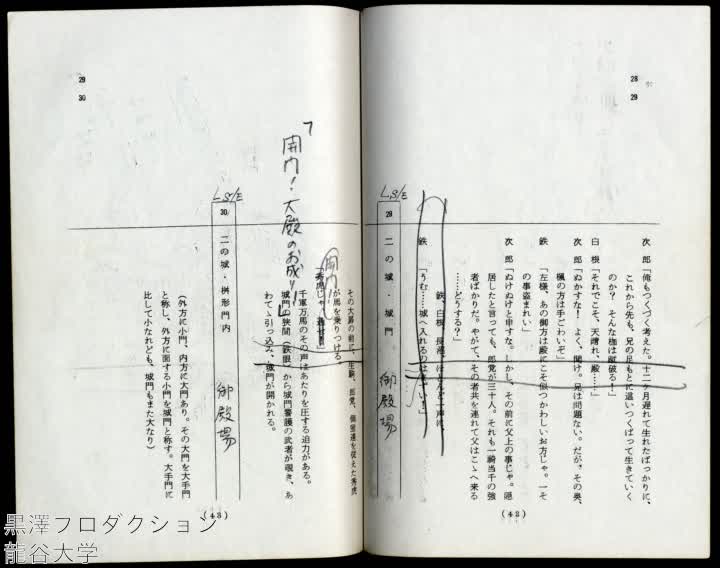 28
29
次郎「俺もつくづく考えた。十二ヶ月遅れて生れたばっかりに、
これから先も、兄の足もとに這いつくばって生きていく
のか? そんな枷は御破算!」
白根「それでこそ、天晴れ、殿……」
次郎「ぬかすな! よく、聞け。兄は問題ない。だが、その奥、
楓の方は手ごわいぞ」
鉄「左様、あの御方は殿にこそ似つかわしいお方じゃ。一そ
の事盗まれい」
次郎「ぬけぬけと申すな。しかし、その前に父上の事じゃ。隠
居したと言っても、郎党が三十人。それも一騎当千の強
者ばかりだ。やがて、その者共を連れて父はこゝへ来る
……どうする?」
鉄、白根、長沼、ほとんど一声に、
鉄「うむ……城へ入れるのは
L,S/E
29 二の城・城門
御殿場
(42)
29
30
その大扉の前に、生駒、郎党、側室達を従えた秀虎
が馬を乗りつける。
開門!
「秀虎じゃ
「開門!大殿のお成り」
千軍万馬のその声はあたりを圧する迫力がある。
城門の狭間(鉄眼)から城門警護の武者が覗き、あ
わてゝ引っ込み、城門が開かれる。
L,S/E
30 二の城・桝形門内
御殿場
(外方に小門、内方に大門あり。その大門を大手門
と称し、外方に面する小門を城門と称す。大手門に
比して小なれども、城門もまた大なり)
(43)
黒澤プロダクション
龍谷大学